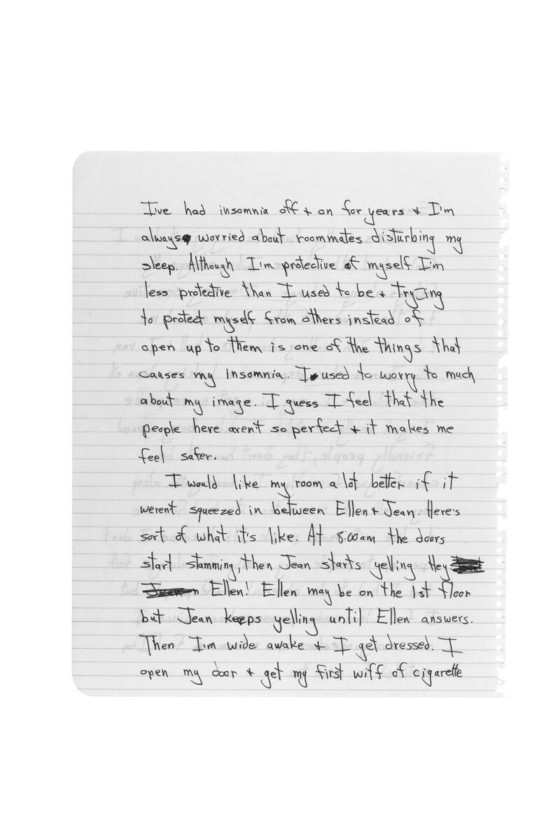 I've had insomnia off + on for years + I'm
always worried about roommates disturbing my
sleep. Although I'm protective of myself I'm
less protective than I used to be + trying
to protect myself from others instead of
open up to them is one of the things that
causes my insomnia. I used to worry to much
about my image. I guess I feel that the
people here aren't so perfect + it makes me
feel safer.
I would like my room a lot better if it
weren't squeezed in between Ellen + Jean. Here's
sort of what it's like. At 8:00am the doors
start slamming, then Jean starts yelling Hey
Ellen! Ellen may be on the 1st floor
but Jean keeps yelling until Ellen answers.
Then I'm wide awake + I get dressed. I
open my door + get my first wiff of cigarette